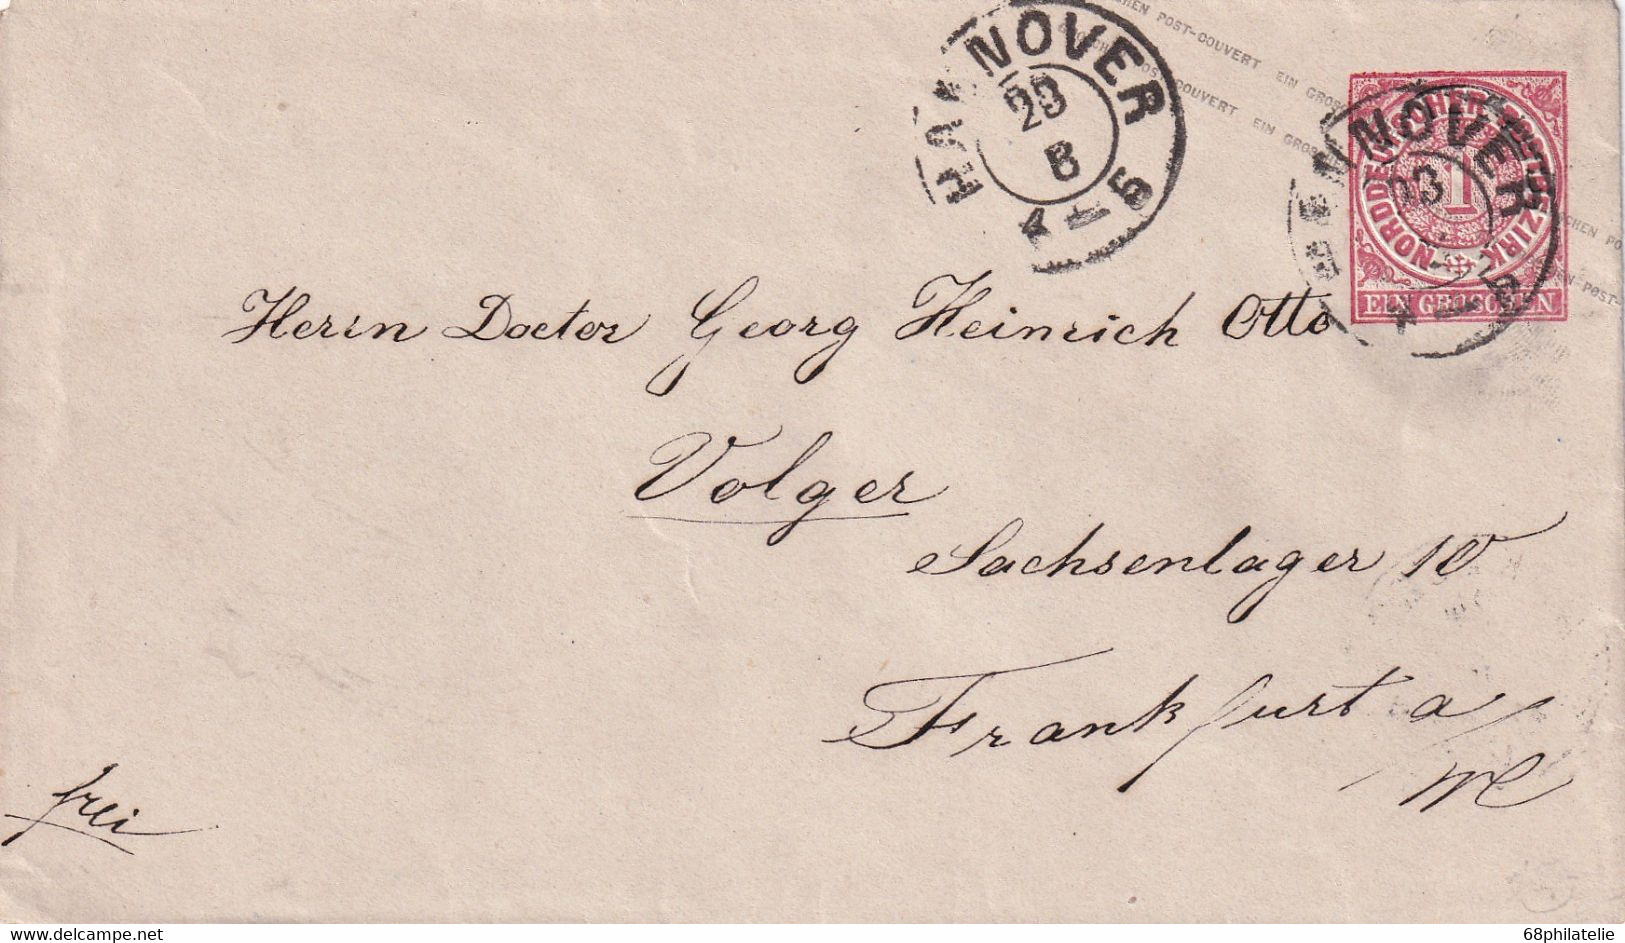 HEN POST-COUVERT EIN GROSCHEN
GROSCHEN POST-COUVERT EIN GROSCHEN
HANNOVER
23
8
4-5
NORDDEUTSCHER POSTBEZIRK
1
EIN GROSCHEN
HANNOVER
23
Herrn Doctor Georg Heinrich Otto
Volger
Sachsenlager 10
Frankfurt a/
M
frei
www.delcampe.net
68philatelie